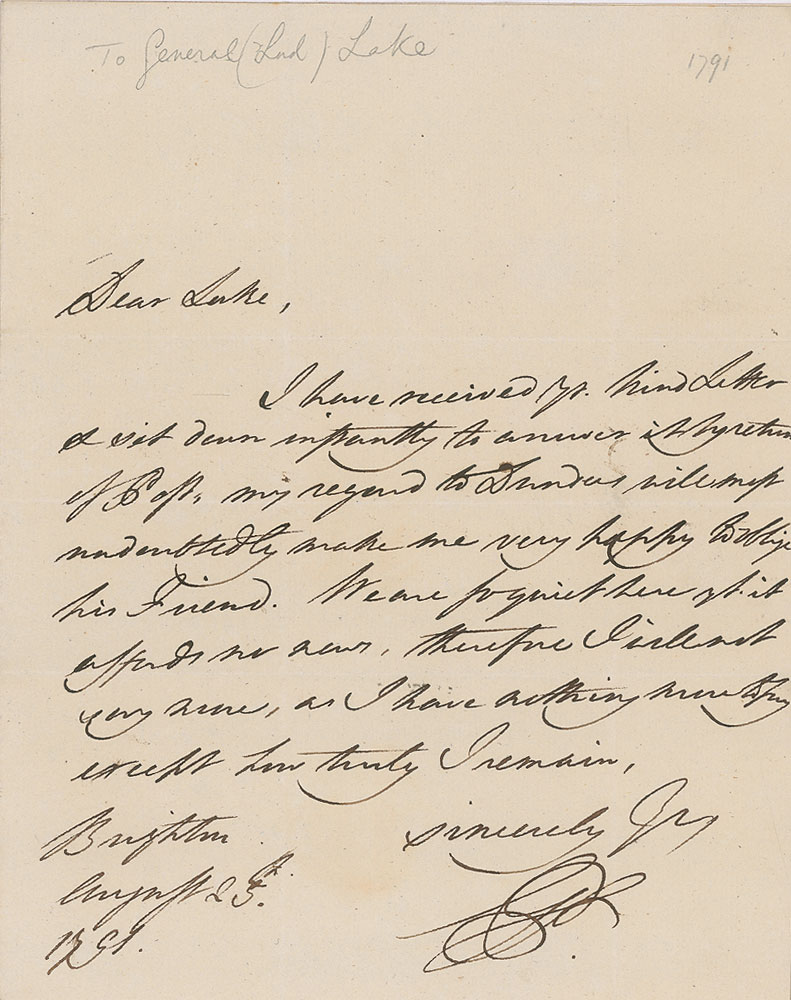 To General (Lord) Lake
1791
Dear Lake,
I have received yr. kind Letter
& sit down instantly to answer it by return
of Post, my regard to Dundas will most
undoubtedly make me very happy to oblige
his Friend. We are so quiet here yt. it
affords no news, therefore I will not
say more, as I have nothing more to say
except how truly I remain,
sincerely Yrs
Brighton
August 25th.
1791.